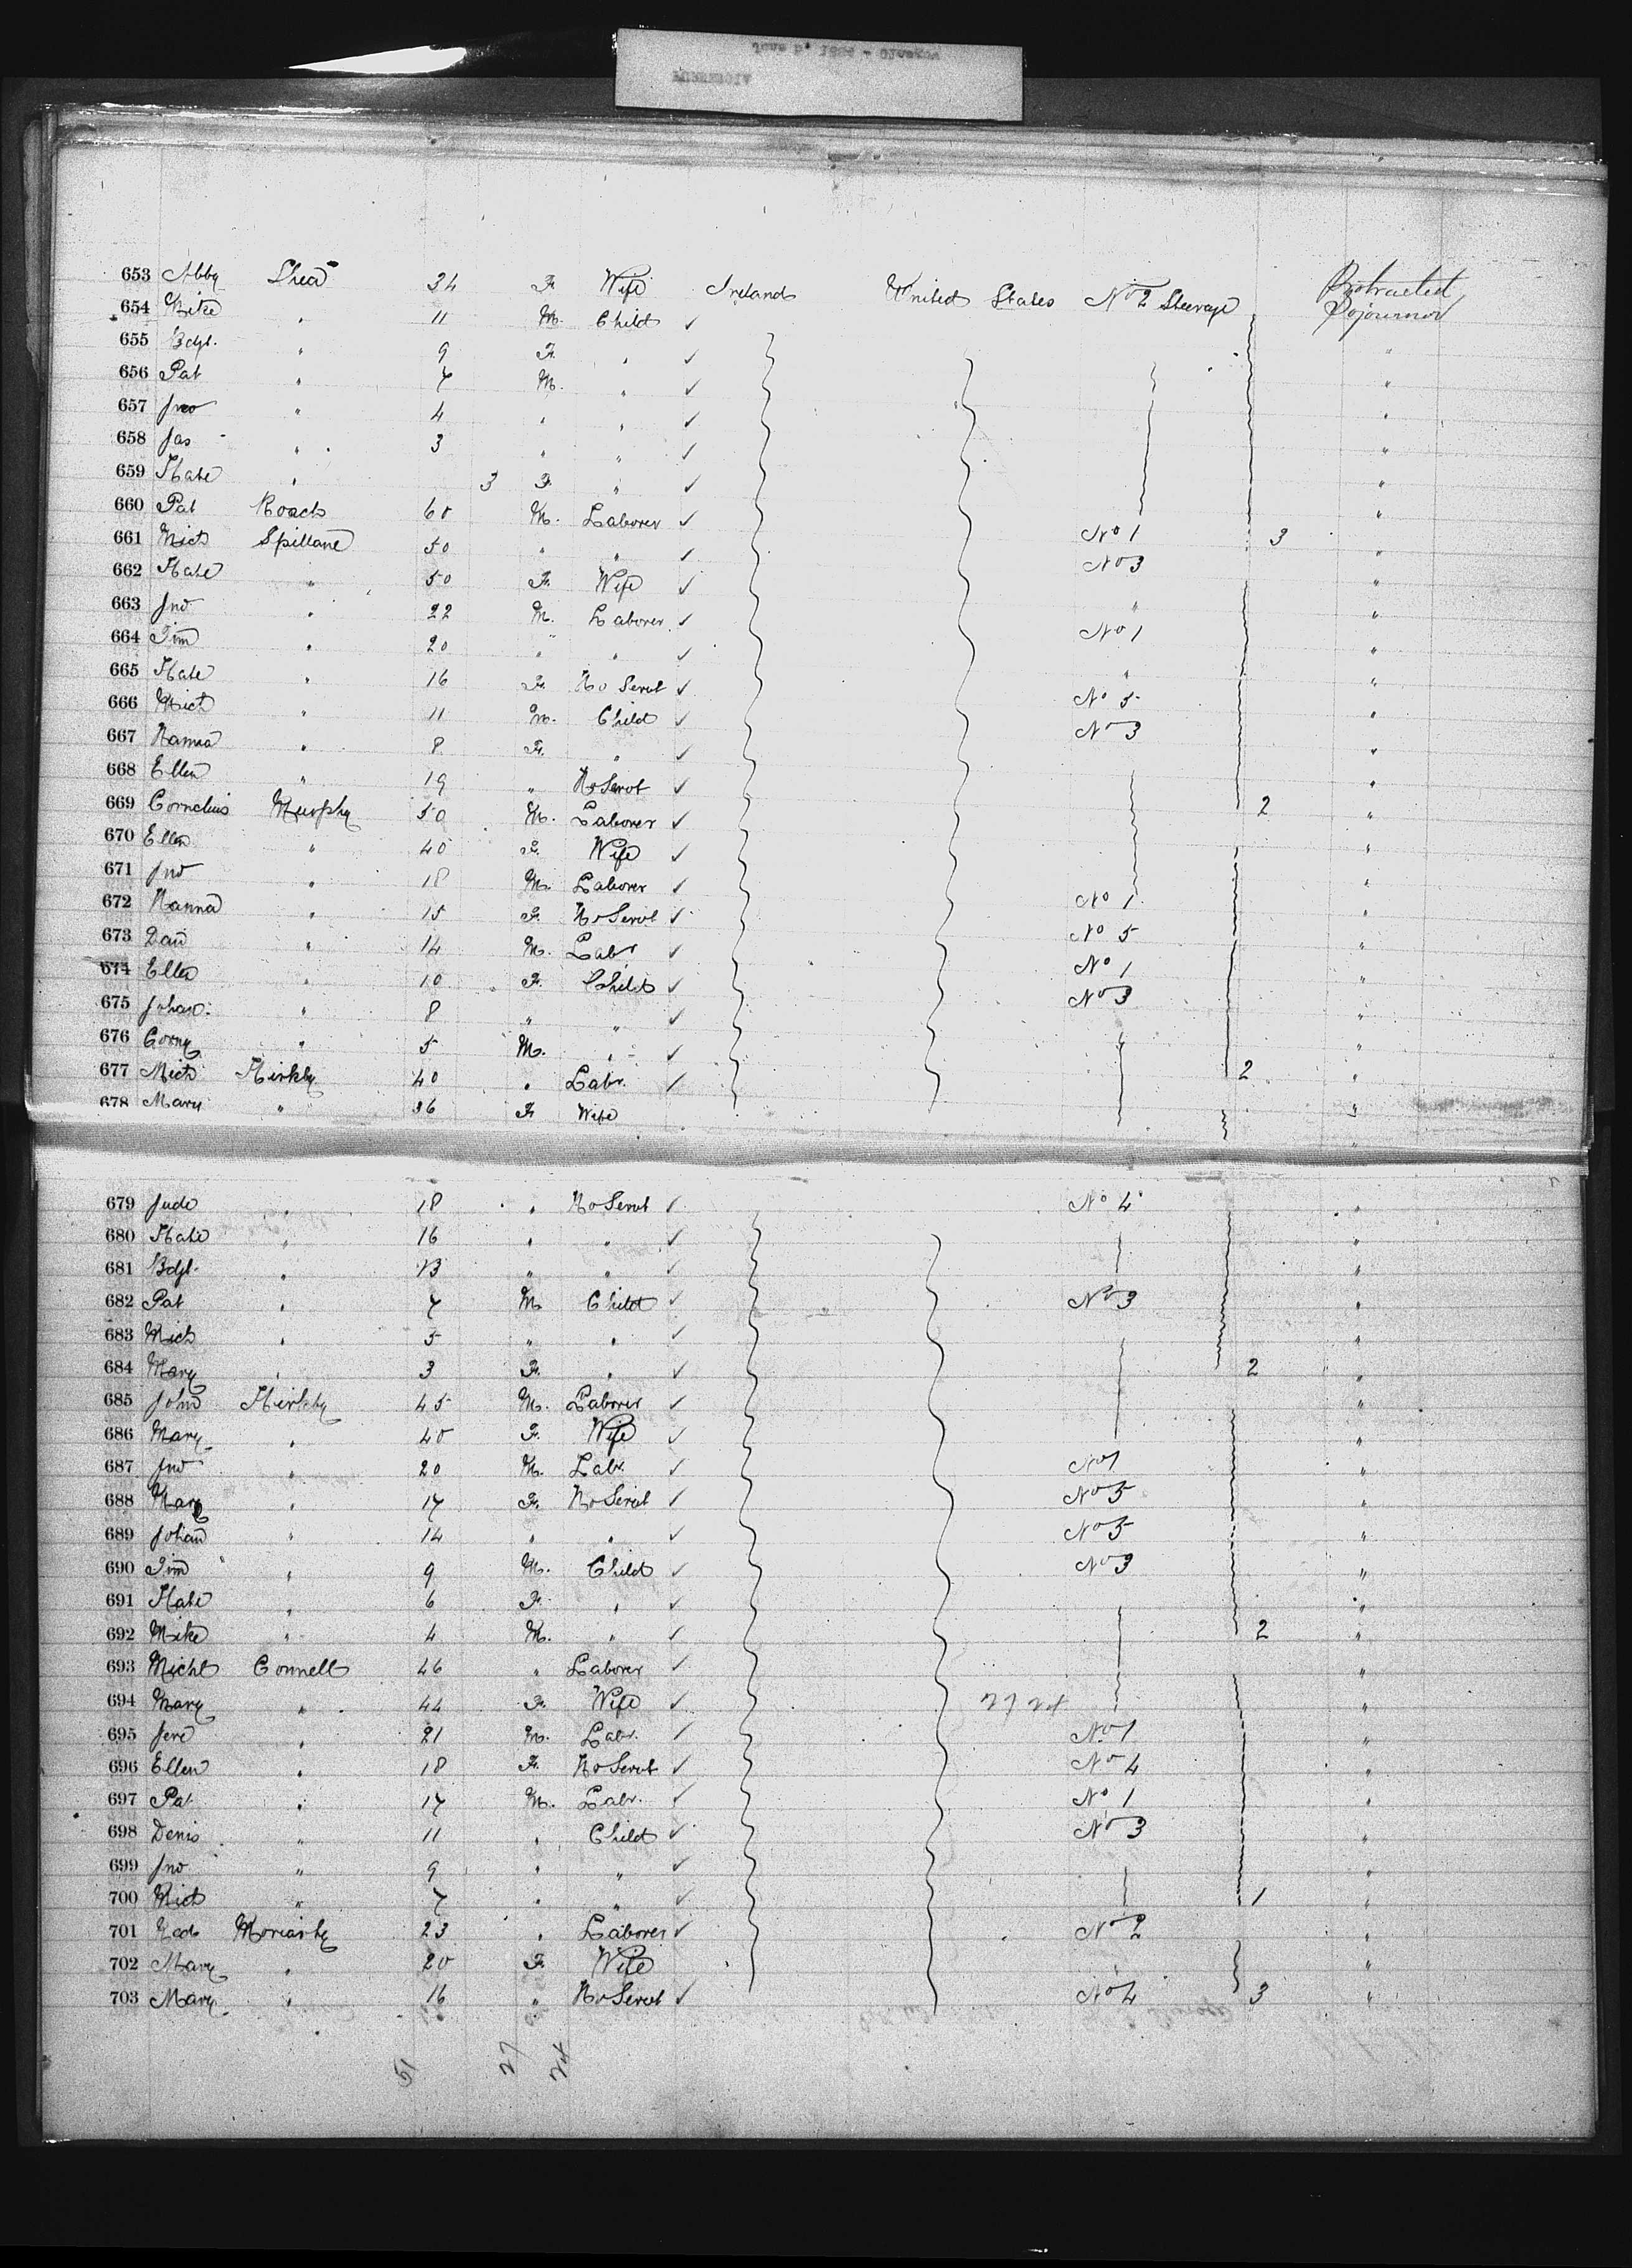 653 Abby Shea 34 F. Wife Ireland United States No 2 Steerage Protracted Sojourner
654 Mike " 11 M. Child ✓ "
655 Bdgt. " 9 F. " ✓ "
656 Pat " 7 M. " ✓ "
657 Jno " 4 " " ✓ "
658 Jas " 3 " " ✓ "
659 Kate " 3 F. " ✓ "
660 Pat Roach 60 M. Laborer ✓ No 1 3 "
661 Mich Spillane 50 " " ✓ No 3 "
662 Kate " 50 F. Wife ✓ " "
663 Jno " 22 M. Laborer ✓ No 1 "
664 Tim " 20 " " ✓ " "
665 Kate " 16 F. Ho Servt ✓ No 5 "
666 Mich " 11 M. Child ✓ No 3 "
667 Hanna " 8 F. " ✓ "
668 Ellen " 19 " Ho Servt ✓ "
669 Cornelius Murphy 50 M. Laborer ✓ 2 "
670 Ellen " 40 F. Wife ✓ "
671 Jno " 18 M. Laborer ✓ No 1 "
672 Hanna " 15 F. Ho Servt ✓ No 5 "
673 Dan " 14 M. Labr ✓ No 1 "
674 Ellen " 10 F. Child ✓ No 3 "
675 Johan. " 8 " " ✓ "
676 Corny " 5 M. " ✓ " "
677 Mich Kirkby 40 " Labr. ✓ 2 "
678 Mary " 36 F. Wife "
679 Jude " 18 " Ho Servt ✓ No 4 "
680 Kate " 16 " " ✓ "
681 Bdgt. " 13 " " ✓ "
682 Pat " 7 M Child ✓ No 3 "
683 Mich " 5 " " ✓ "
684 Mary " 3 F. " ✓ 2 "
685 John Kirkby 45 M. Laborer ✓ "
686 Mary " 40 F. Wife ✓ "
687 Jno " 20 M. Labr. ✓ No 1 "
688 Mary " 17 F. Ho Servt ✓ No 5 "
689 Johan " 14 " " ✓ No 5 "
690 Tim " 9 M. Child ✓ No 3 "
691 Kate " 6 F. " ✓ "
692 Mike " 4 M. " ✓ 2 "
693 Michl Connell 46 " Laborer ✓ "
694 Mary " 44 F. Wife ✓ 27 24 "
695 Jere " 21 M. Labr. ✓ No 1 "
696 Ellen " 18 F. Ho Servt ✓ No 4 "
697 Pat " 17 M. Labr. ✓ No 1 "
698 Denis " 11 " Child ✓ No 3 "
699 Jno " 9 " " ✓ "
700 Mich " 7 " " ✓ 1 "
701 Moriarty 23 " Laborer ✓ No 2 "
702 Mary " 20 F. Wife "
703 Mary " 16 " Ho Servt ✓ No 4 3 "
51 27 24